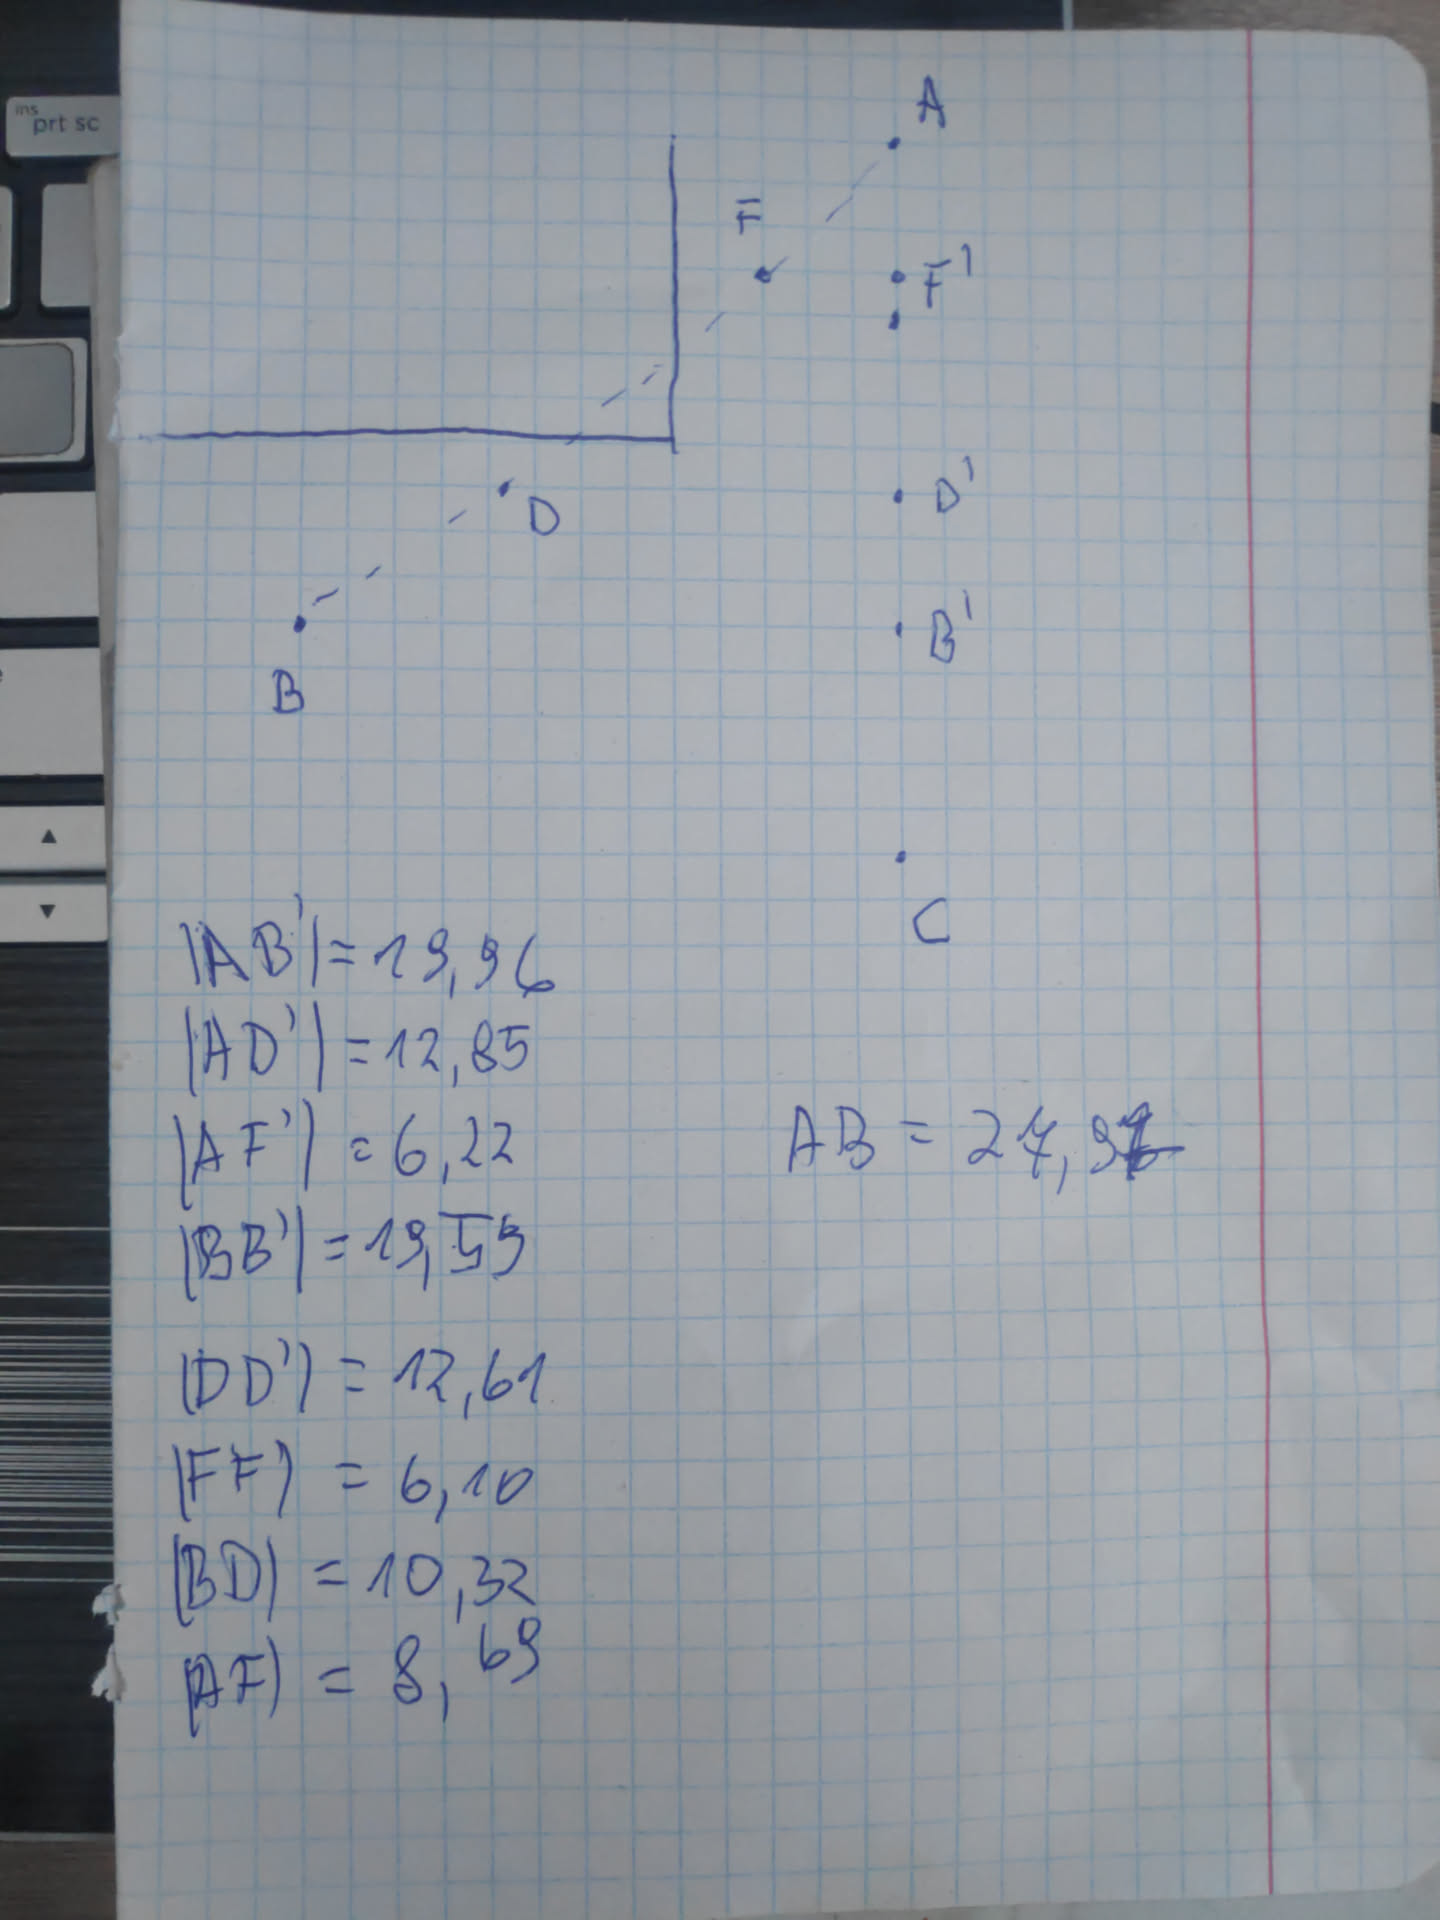 ins
prt sc
A
F
F'
D'
D
B'
B
C
|AB'| = 19,96
|AD'| = 12,85
|AF'| = 6,22
|BB'| = 19,59
|DD'| = 12,61
|FF'| = 6,10
|BD| = 10,32
|AF| = 8,69